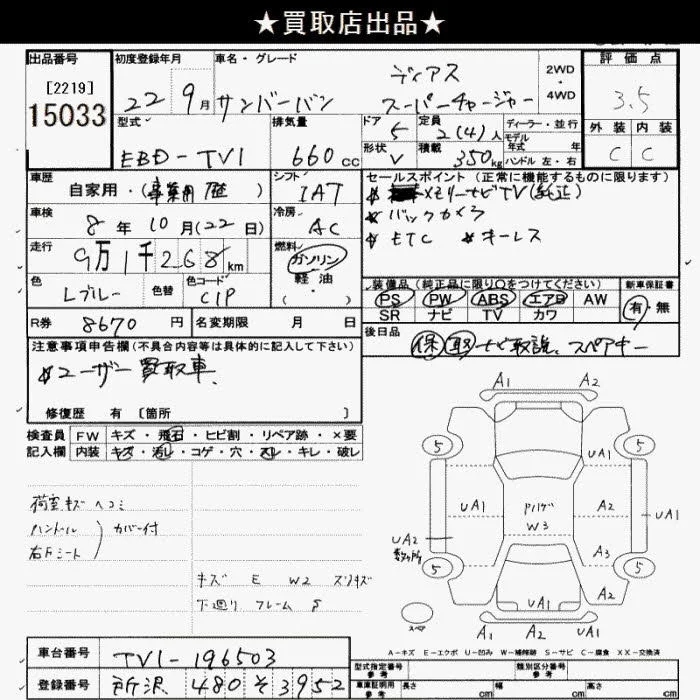 ★買取店出品★
出品番号 [2219] 15033
初度登録年月 22 9月
車名・グレード サンバーバン ディアス スーパーチャージャー
2WD・4WD
評価点 3.5
外装 C 内装 C
型式 EBD-TV1
排気量 660cc
ドア 5
定員 2(4)人
形状 V
積載 350kg
ディーラー・並行
モデル年式 年
ハンドル 左・右
車歴 自家用・(事業用 歴)
シフト IAT
車検 8年10月(22日)
冷房 AC
走行 9万1千268km
燃料 ガソリン 軽油 ( ・ )
色 Lブルー
色替
色コード C1P
R券 8670円
名変期限 月 日
セールスポイント(正常に機能するものに限ります)
メモリーナビTV(純正)
バックカメラ
ETC キーレス
装備品(純正品に限り○をつけてください)
PS PW ABS エアB AW
SR ナビ TV カワ
新車保証書 有・無
後日品 保 取 ナビ取説、スペアキー
注意事項申告欄(不具合内容等は具体的に記入して下さい)
ユーザー買取車
修復歴 有 〔箇所 〕
検査員記入欄
FW キズ・飛石・ヒビ割・リペア跡・×要
内装 キズ・汚レ・コゲ・穴・スレ・キレ・破レ
荷室キズ ヘコミ
ハンドル
右Fシート
カバー付
キズ E W2 スリキズ
下廻り フレーム S
A1 A2
5 5
UA1
UA1 W3 A2 UA1
UA2
A3
5 5
UA1
スペア
A1 UA1 A2
A-キズ E-エクボ U-凹み W-補修跡 S-サビ C-腐食 XX-交換済
車台番号 TV1-196503
登録番号 所沢 480 そ 3952
型式指定番号 参考
類別区分番号 参考
車庫証明用 参考
長さ cm 幅 cm 高さ cm